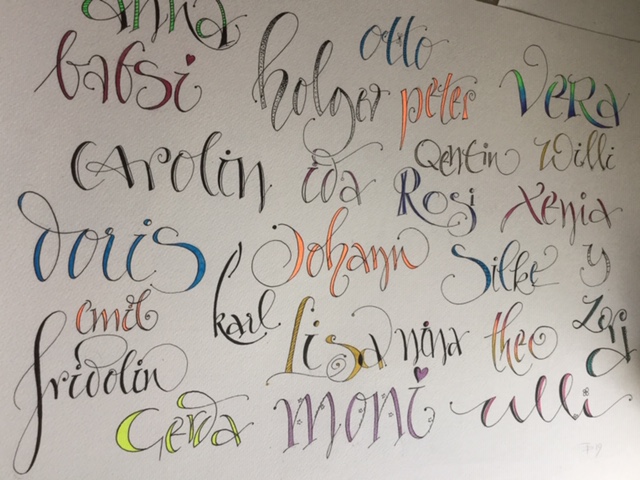 anna otto
babsi holger peter Vera
Carolin ida Qentin Willi
Rosi Xenia
doris Johann Silke y
emil karl Lisa nina theo Zora
fridolin
Gerda moni ulli